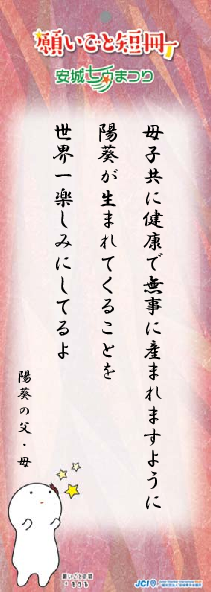 願いごと短冊
安城七夕まつり
母子共に健康で無事に産まれますように
陽葵が生まれてくることを
世界一楽しみにしてるよ
陽葵の父・母
願いごと短冊
JCI